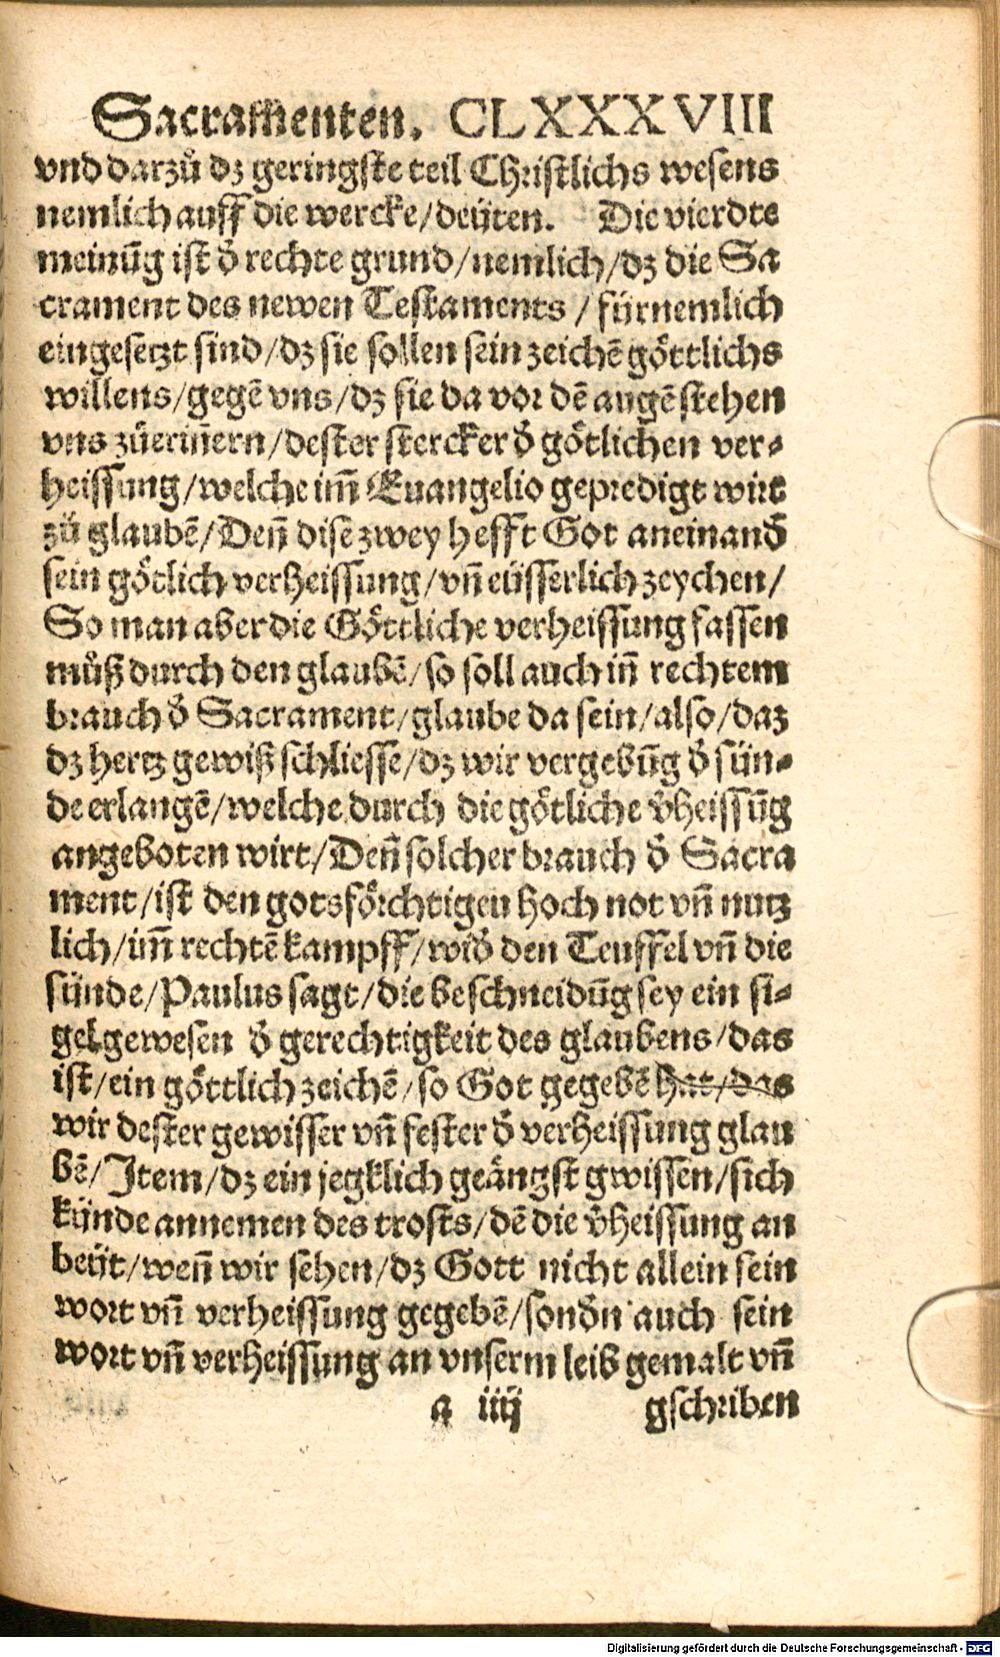 Sacramenten. CLXXXVIII
vnd darzů dz geringste teil Christlichs wesens
nemlich auff die wercke/deüten. Die vierdte
meinūg ist d̄ rechte grund/nemlich/dz die Sa
crament des newen Testaments / fürnemlich
eingesetzt sind/dz sie sollen sein zeichē göttlichs
willens/gegē vns/dz sie da vor dē augē stehen
vns züeriñern/dester stercker d̄ götlichen ver⸗
heissung/welche im̄ Euangelio gepredigt wirt
zü glaubē/Deñ dise zwey hefft Got aneinand̄
sein götlich verheissung/vñ eüsserlich zeychen/
So man aber die Göttliche verheissung fassen
můß durch den glaubē/so soll auch iñ rechtem
brauch d̄ Sacrament/glaube da sein/also/daz
dz hertz gewiß schliesse/dz wir vergebūg d̄ sün⸗
de erlangē/welche durch die götliche v̄heissūg
angeboten wirt/Deñ solcher brauch d̄ Sacra
ment/ist den gotsförchtigen hoch not vñ nutz
lich/im̄ rechtē kampff/wid̄ den Teuffel vñ die
sünde/Paulus sagt/die beschneidūg sey ein si⸗
gel gewesen d̄ gerechtigkeit des glaubens/das
ist/ein göttlich zeichē/so Got gegebē hat/das
wir dester gewisser vñ fester d̄ verheissung glau
bē/Item/dz ein jegklich geängst gwissen/sich
künde annemen des trosts/dē die v̄heissung an
beüt/weñ wir sehen/dz Gott nicht allein sein
wort vñ verheissung gegebē/sond̄n auch sein
wort vñ verheissung an vnserm leib gemalt vñ
a iiij gschriben
Digitalisierung gefördert durch die Deutsche Forschungsgemeinschaft - DFG